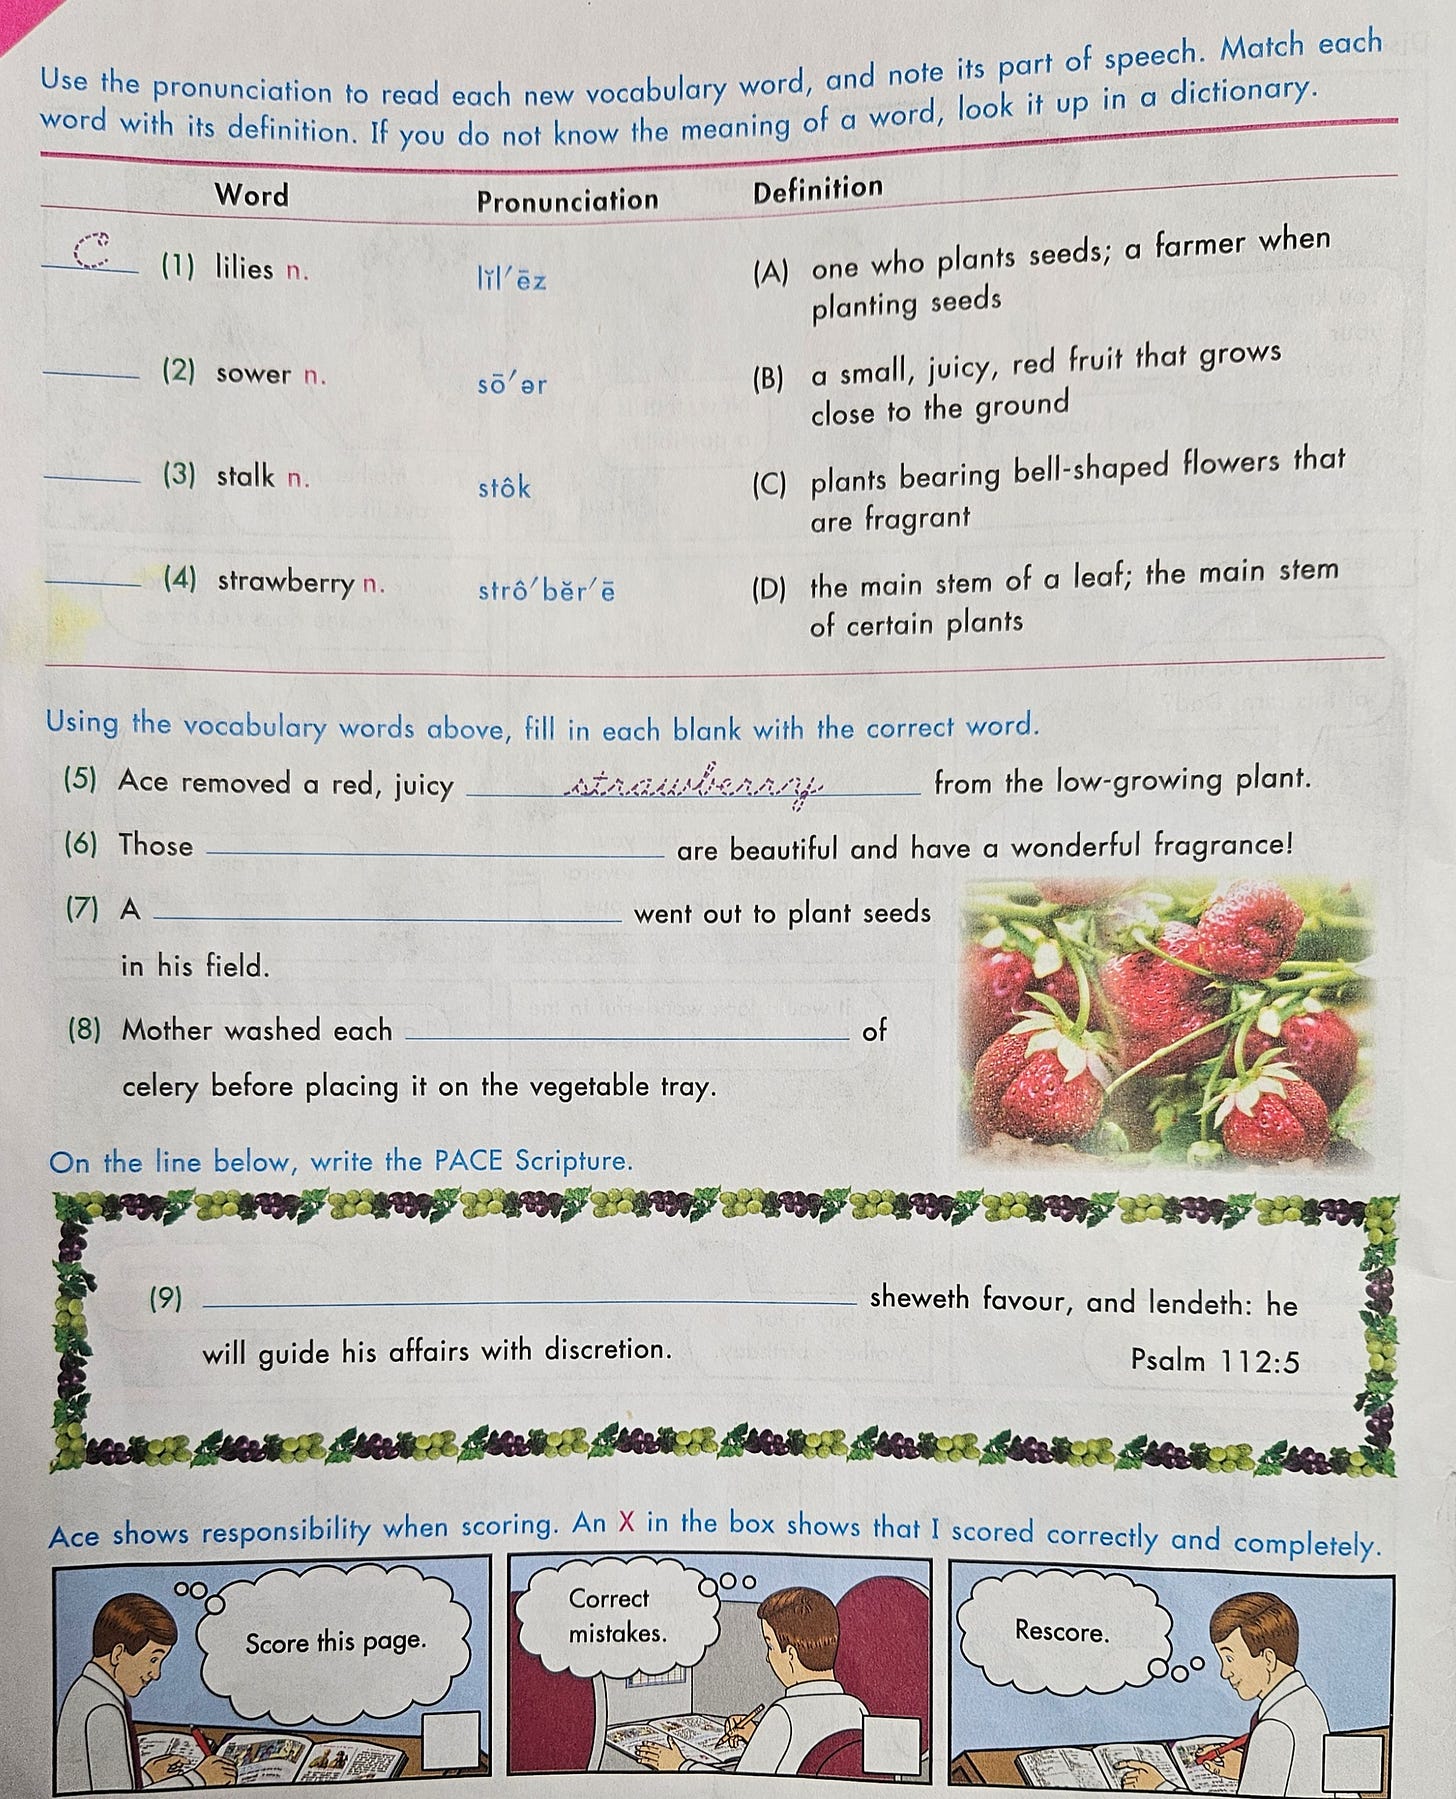 Use the pronunciation to read each new vocabulary word, and note its part of speech. Match each
word with its definition. If you do not know the meaning of a word, look it up in a dictionary.
Word Pronunciation Definition
C (1) lilies n. lĭl′ēz (A) one who plants seeds; a farmer when
planting seeds
(2) sower n. sō′ər (B) a small, juicy, red fruit that grows
close to the ground
(3) stalk n. stôk (C) plants bearing bell-shaped flowers that
are fragrant
(4) strawberry n. strô′bĕr′ē (D) the main stem of a leaf; the main stem
of certain plants
Using the vocabulary words above, fill in each blank with the correct word.
(5) Ace removed a red, juicy strawberry from the low-growing plant.
(6) Those are beautiful and have a wonderful fragrance!
(7) A went out to plant seeds
in his field.
(8) Mother washed each of
celery before placing it on the vegetable tray.
On the line below, write the PACE Scripture.
(9) sheweth favour, and lendeth: he
will guide his affairs with discretion.
Psalm 112:5
Ace shows responsibility when scoring. An X in the box shows that I scored correctly and completely.
Score this page.
Correct
mistakes.
Rescore.